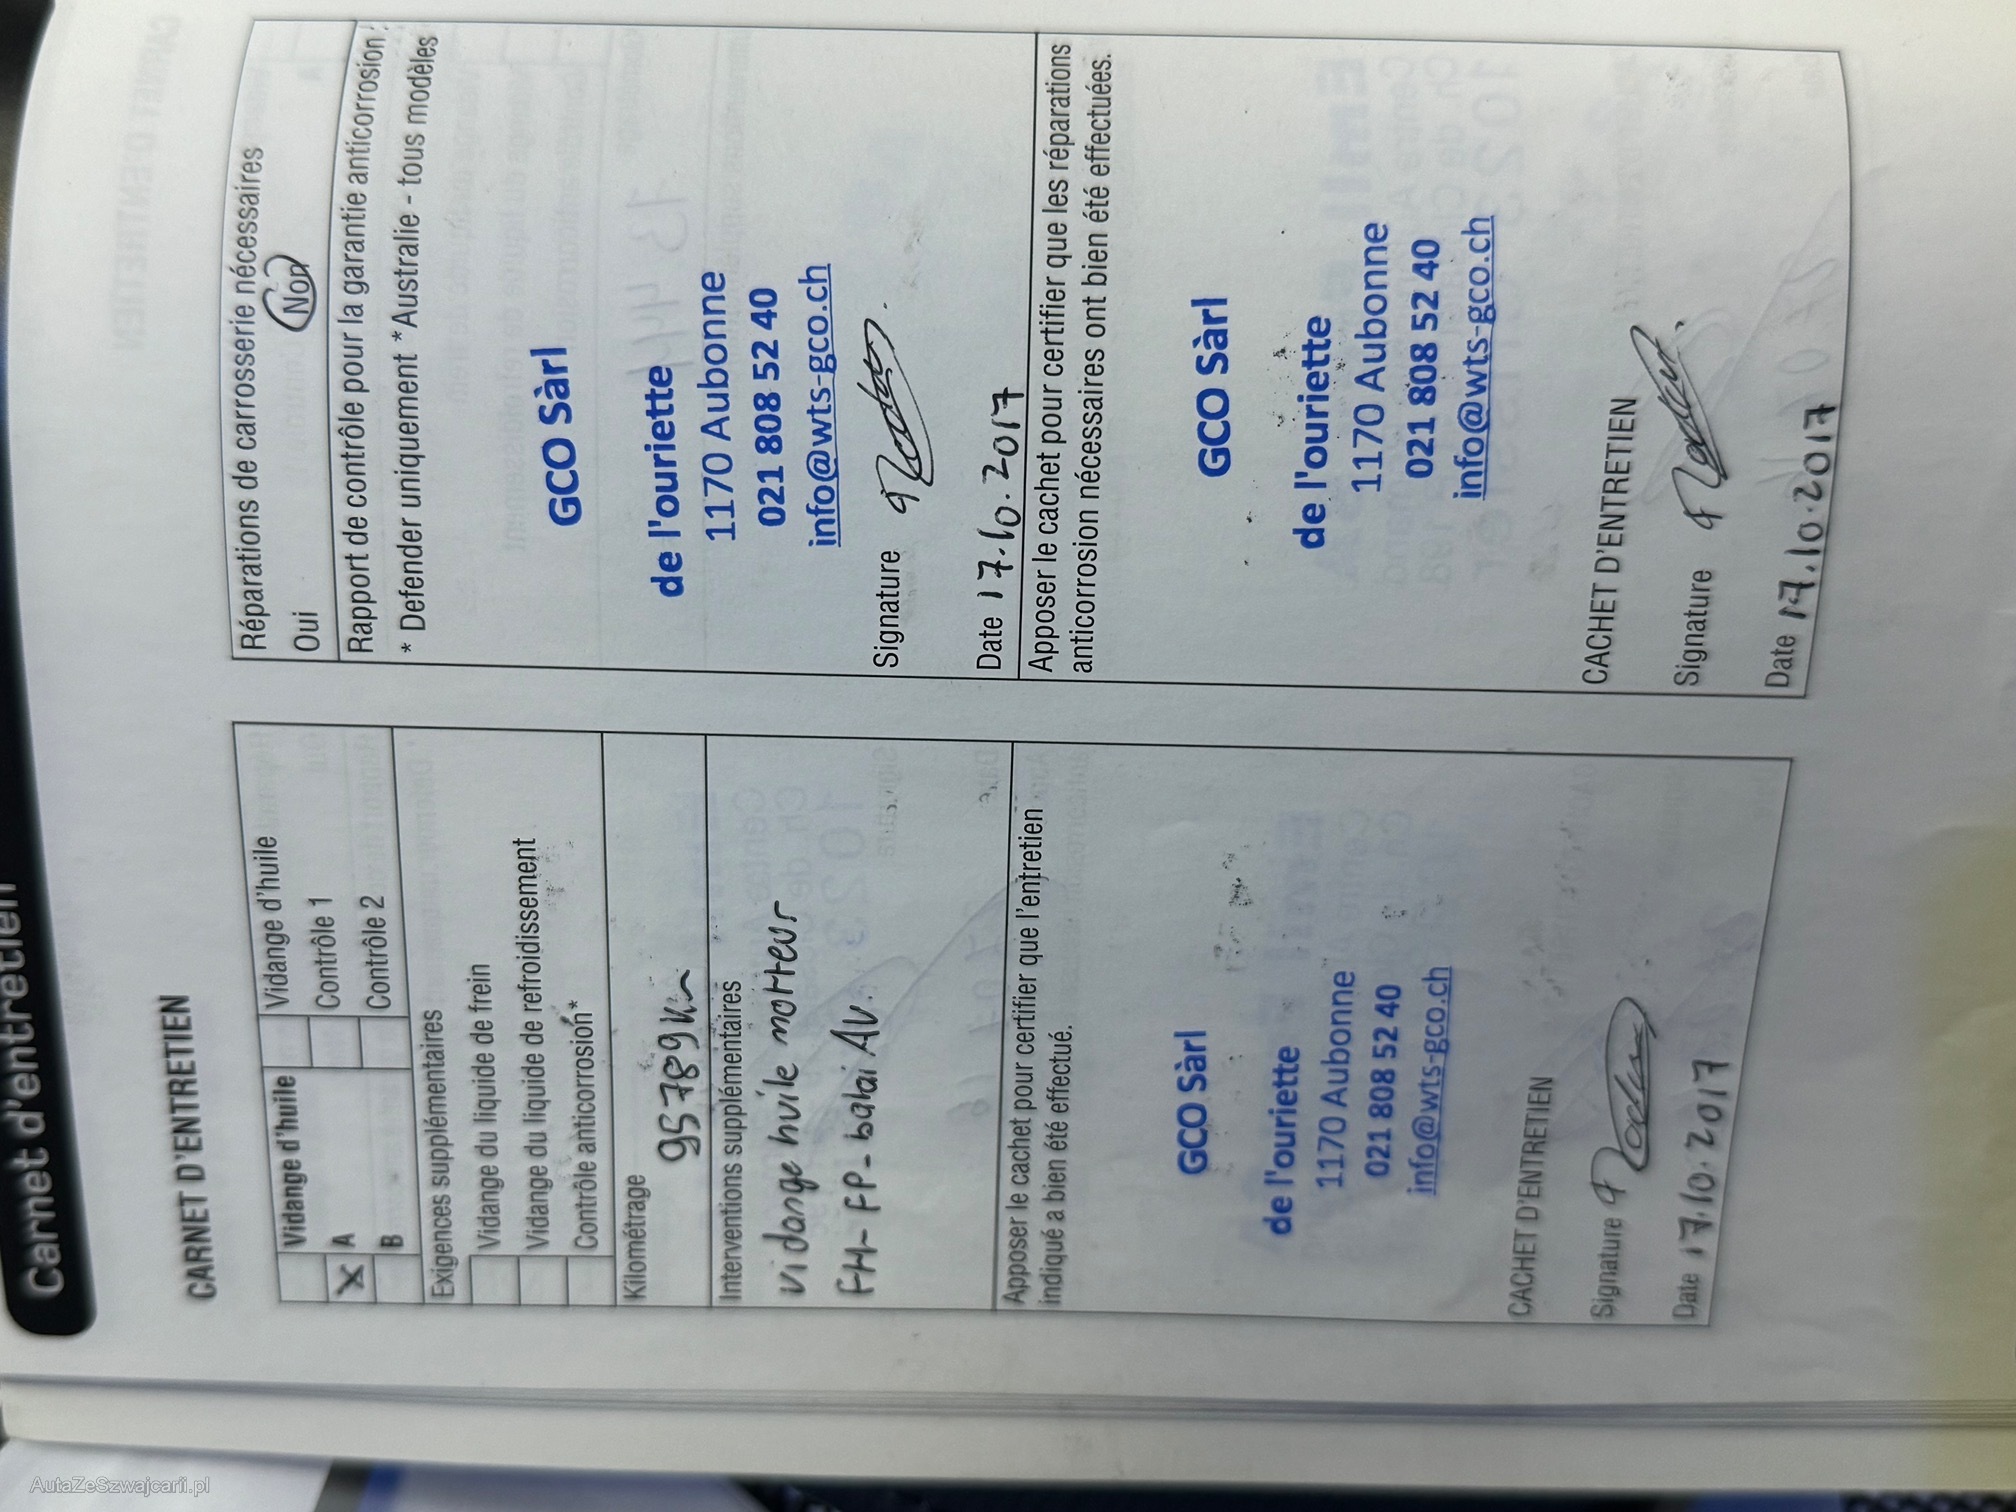 Carnet d'entretien
CARNET D'ENTRETIEN
Vidange d'huile
Vidange d'huile
X A
Contrôle 1
B
Contrôle 2
Exigences supplémentaires
Vidange du liquide de frein
Vidange du liquide de refroidissement
Contrôle anticorrosion*
Kilométrage
95789 km
Interventions supplémentaires
vidange huile motteur
FH- FP- balai AV.
Apposer le cachet pour certifier que l'entretien
indiqué a bien été effectué.
GCO Sàrl
de l'ouriette
1170 Aubonne
021 808 52 40
info@wts-gco.ch
CACHET D'ENTRETIEN
Signature
Date 17.10.2017
Réparations de carrosserie nécessaires
Oui Non
Rapport de contrôle pour la garantie anticorrosion :
* Defender uniquement *Australie - tous modèles
GCO Sàrl
de l'ouriette
1170 Aubonne
021 808 52 40
info@wts-gco.ch
Signature
Date 17.10.2017
Apposer le cachet pour certifier que les réparations
anticorrosion nécessaires ont bien été effectuées.
GCO Sàrl
de l'ouriette
1170 Aubonne
021 808 52 40
info@wts-gco.ch
CACHET D'ENTRETIEN
Signature
Date 17.10.2017
AutaZeSzwajcarii.pl